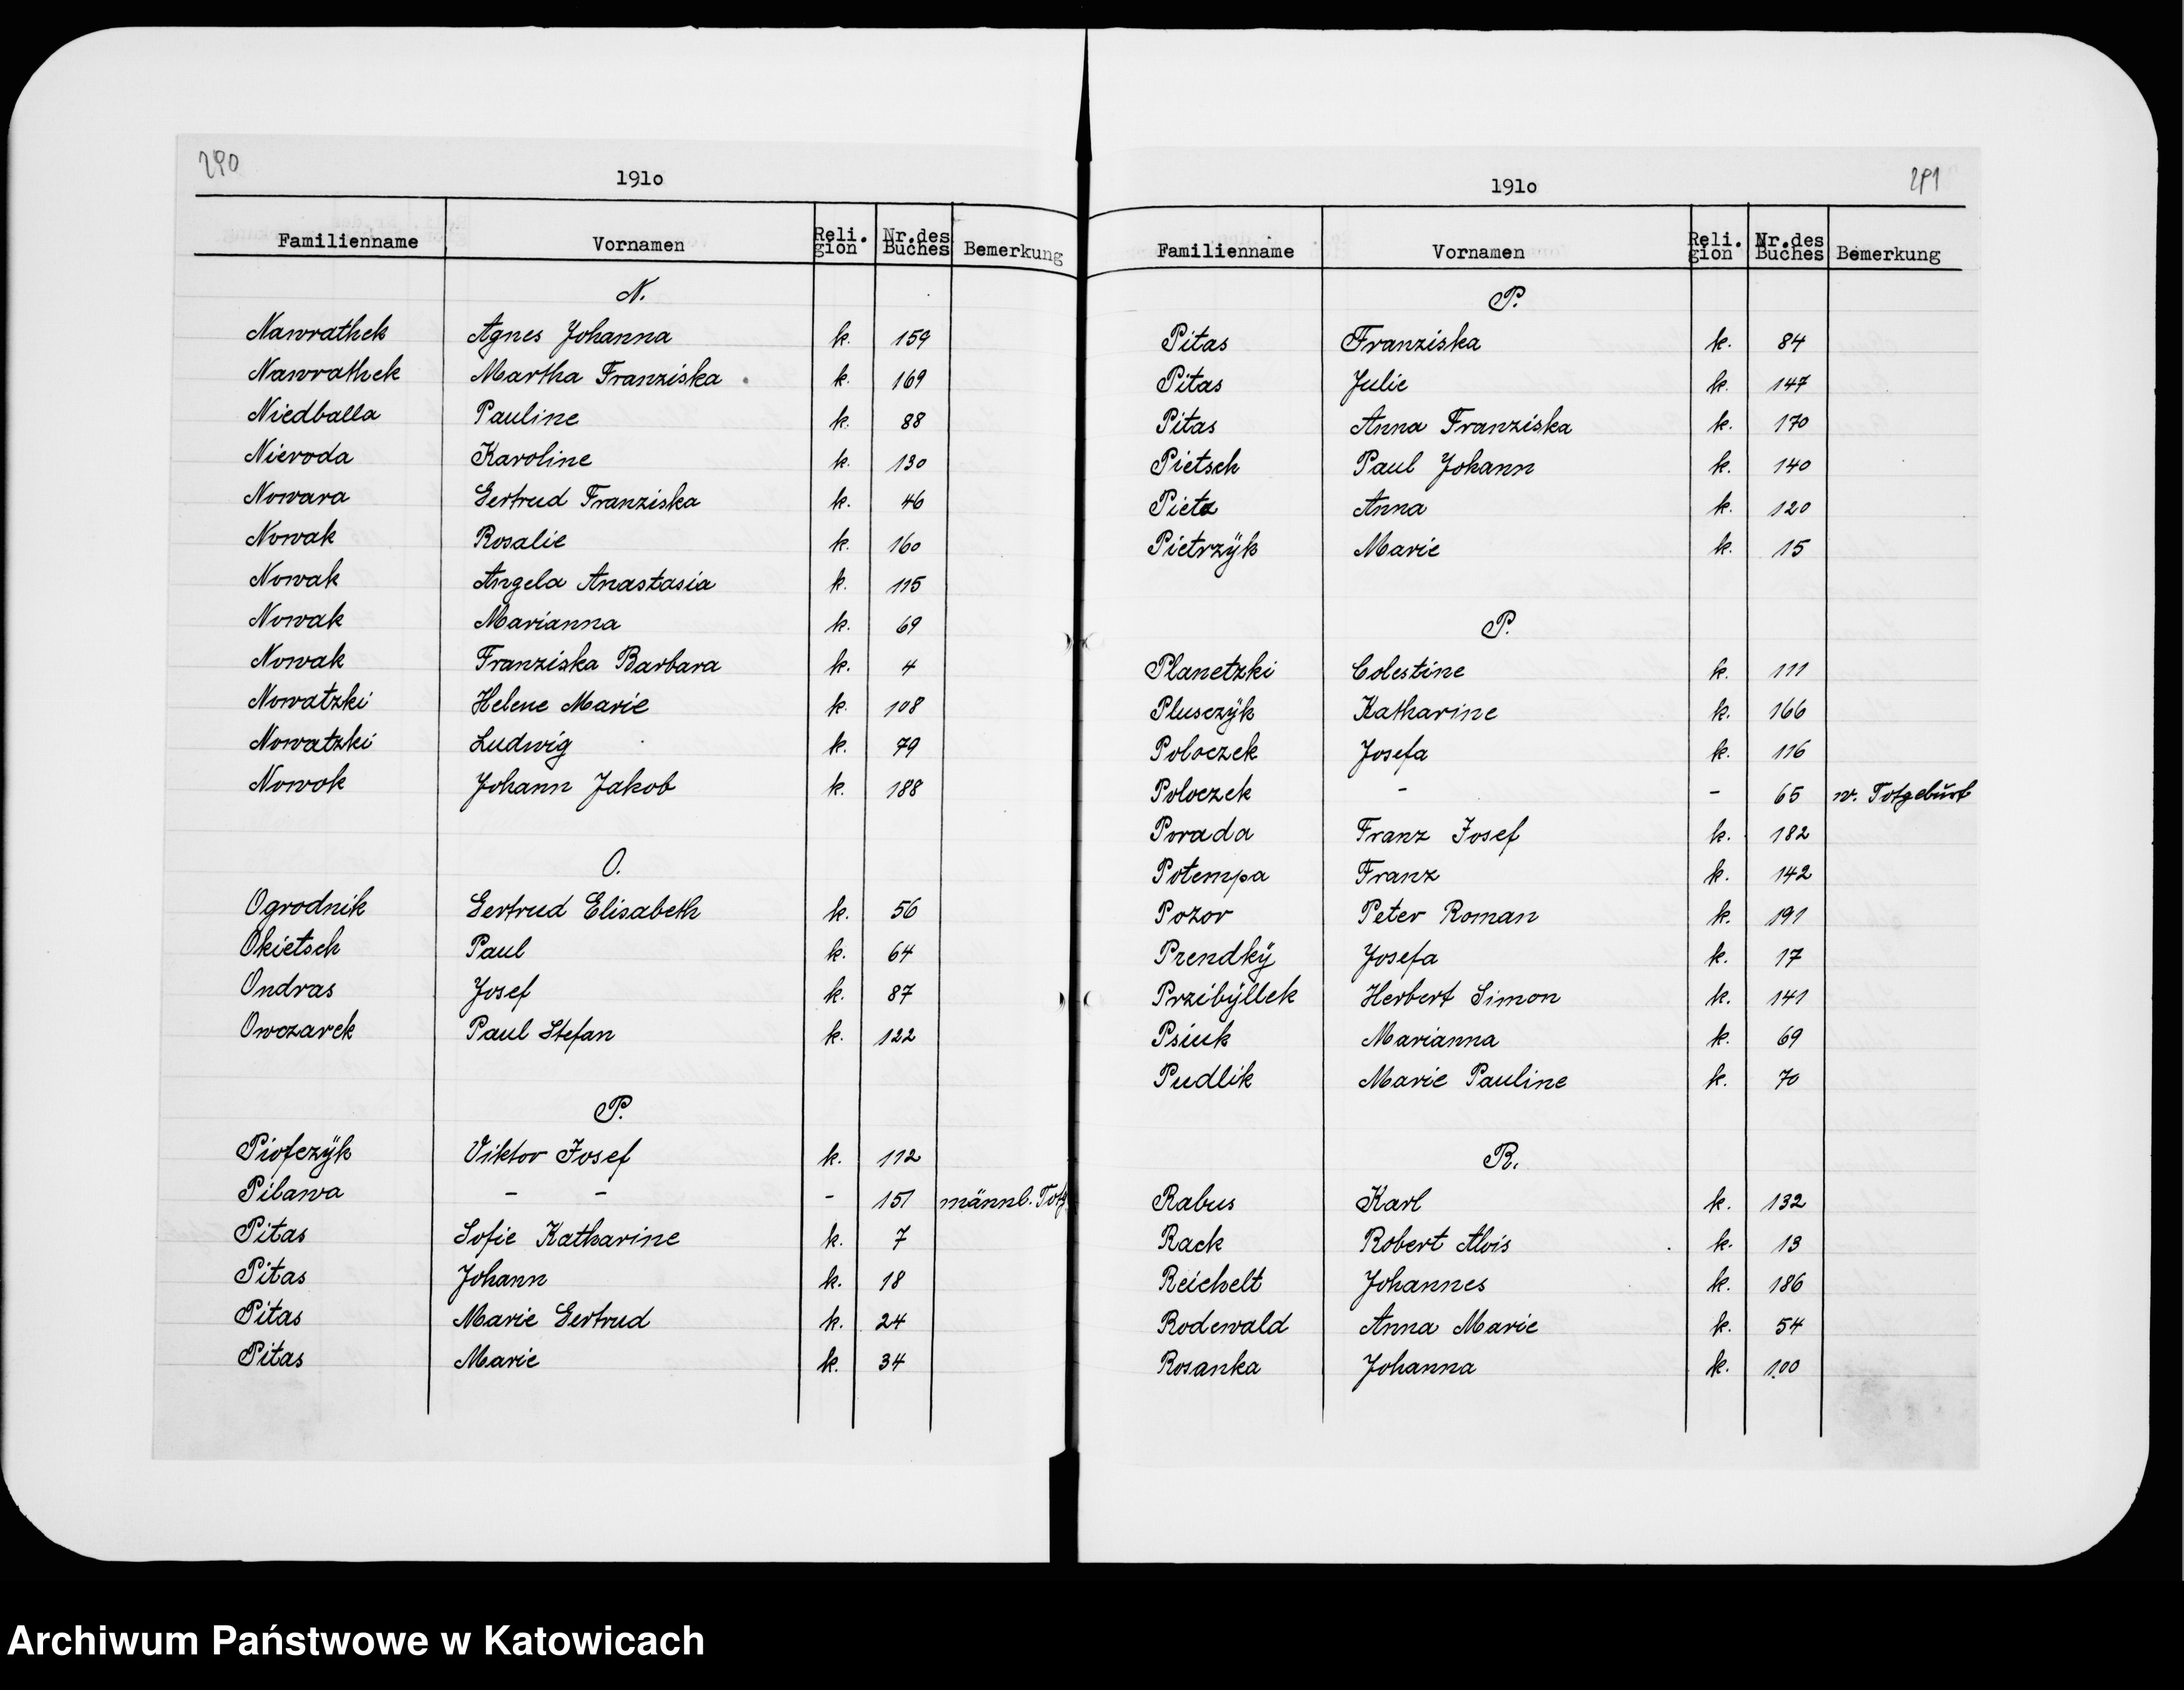 290
1910
Familienname Vornamen Reli. gion Nr.des Buches Bemerkung
N.
Nawrathek Agnes Johanna k. 159
Nawrathek Martha Franziska k. 169
Niedballa Pauline k. 88
Nieroda Karoline k. 130
Nowara Gertrud Franziska k. 46
Nowak Rosalie k. 160
Nowak Angela Anastasia k. 115
Nowak Marianna k. 69
Nowak Franziska Barbara k. 4
Nowatzki Helene Marie k. 108
Nowatzki Ludwig k. 79
Nowok Johann Jakob k. 188
O.
Ogrodnik Gertrud Elisabeth k. 56
Okietsch Paul k. 64
Ondras Josef k. 87
Owczarek Paul Stefan k. 122
P.
Viktor Josef k. 112
Pilawa - - - 151 männl. Totg
Pitas Sofie Katharine k. 7
Pitas Johann k. 18
Pitas Marie Gertrud k. 24
Pitas Marie k. 34
291
1910
Familienname Vornamen Reli. gion Nr.des Buches Bemerkung
P.
Pitas Franziska k. 84
Pitas Julie k. 147
Pitas Anna Franziska k. 170
Pietsch Paul Johann k. 140
Anna k. 120
Pietrzÿk Marie k. 15
P.
Planetzki Colestine k. 111
Plusczÿk Katharine k. 166
Poloczek Josefa k. 116
Poloczek - - 65 w. Totgebŭrt
Porada Franz Josef k. 182
Potempa Franz k. 142
Pozor Peter Roman k. 191
Prendkÿ Josefa k. 17
Przibÿllek Herbert Simon k. 141
Psiuk Marianna k. 69
Pudlik Marie Pauline k. 70
R.
Rabus Karl k. 132
Rack Robert Alois k. 13
Reichelt Johannes k. 186
Rodewald Anna Marie k. 54
Rosanka Johanna k. 100
Archiwum Państwowe w Katowicach